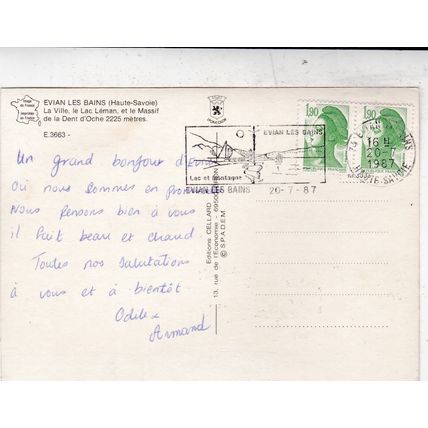 Image de France
Imprimée en France
EVIAN LES BAINS (Haute-Savoie)
La Ville, le Lac Léman, et le Massif
de la Dent d'Oche 2225 mètres.
E.3663 -
Un grand bonjour d'Evian
Où nous sommes en promenade
Nous Pensons bien à vous
il fait beau et chaud
Toutes nos salutations
à vous et à bientôt
Odile &
Armand
Editions CELLARD
13, rue de l'Economie - 69500 BRON
© S.P.A.D.E.M.
EVIAN LES BAINS
Lac et Montagne
EVIAN LES BAINS
20-7-87
1,90
1,90
74 EVIAN LES BAINS
16 H
20-7
1987
HAUTE-SAVOIE